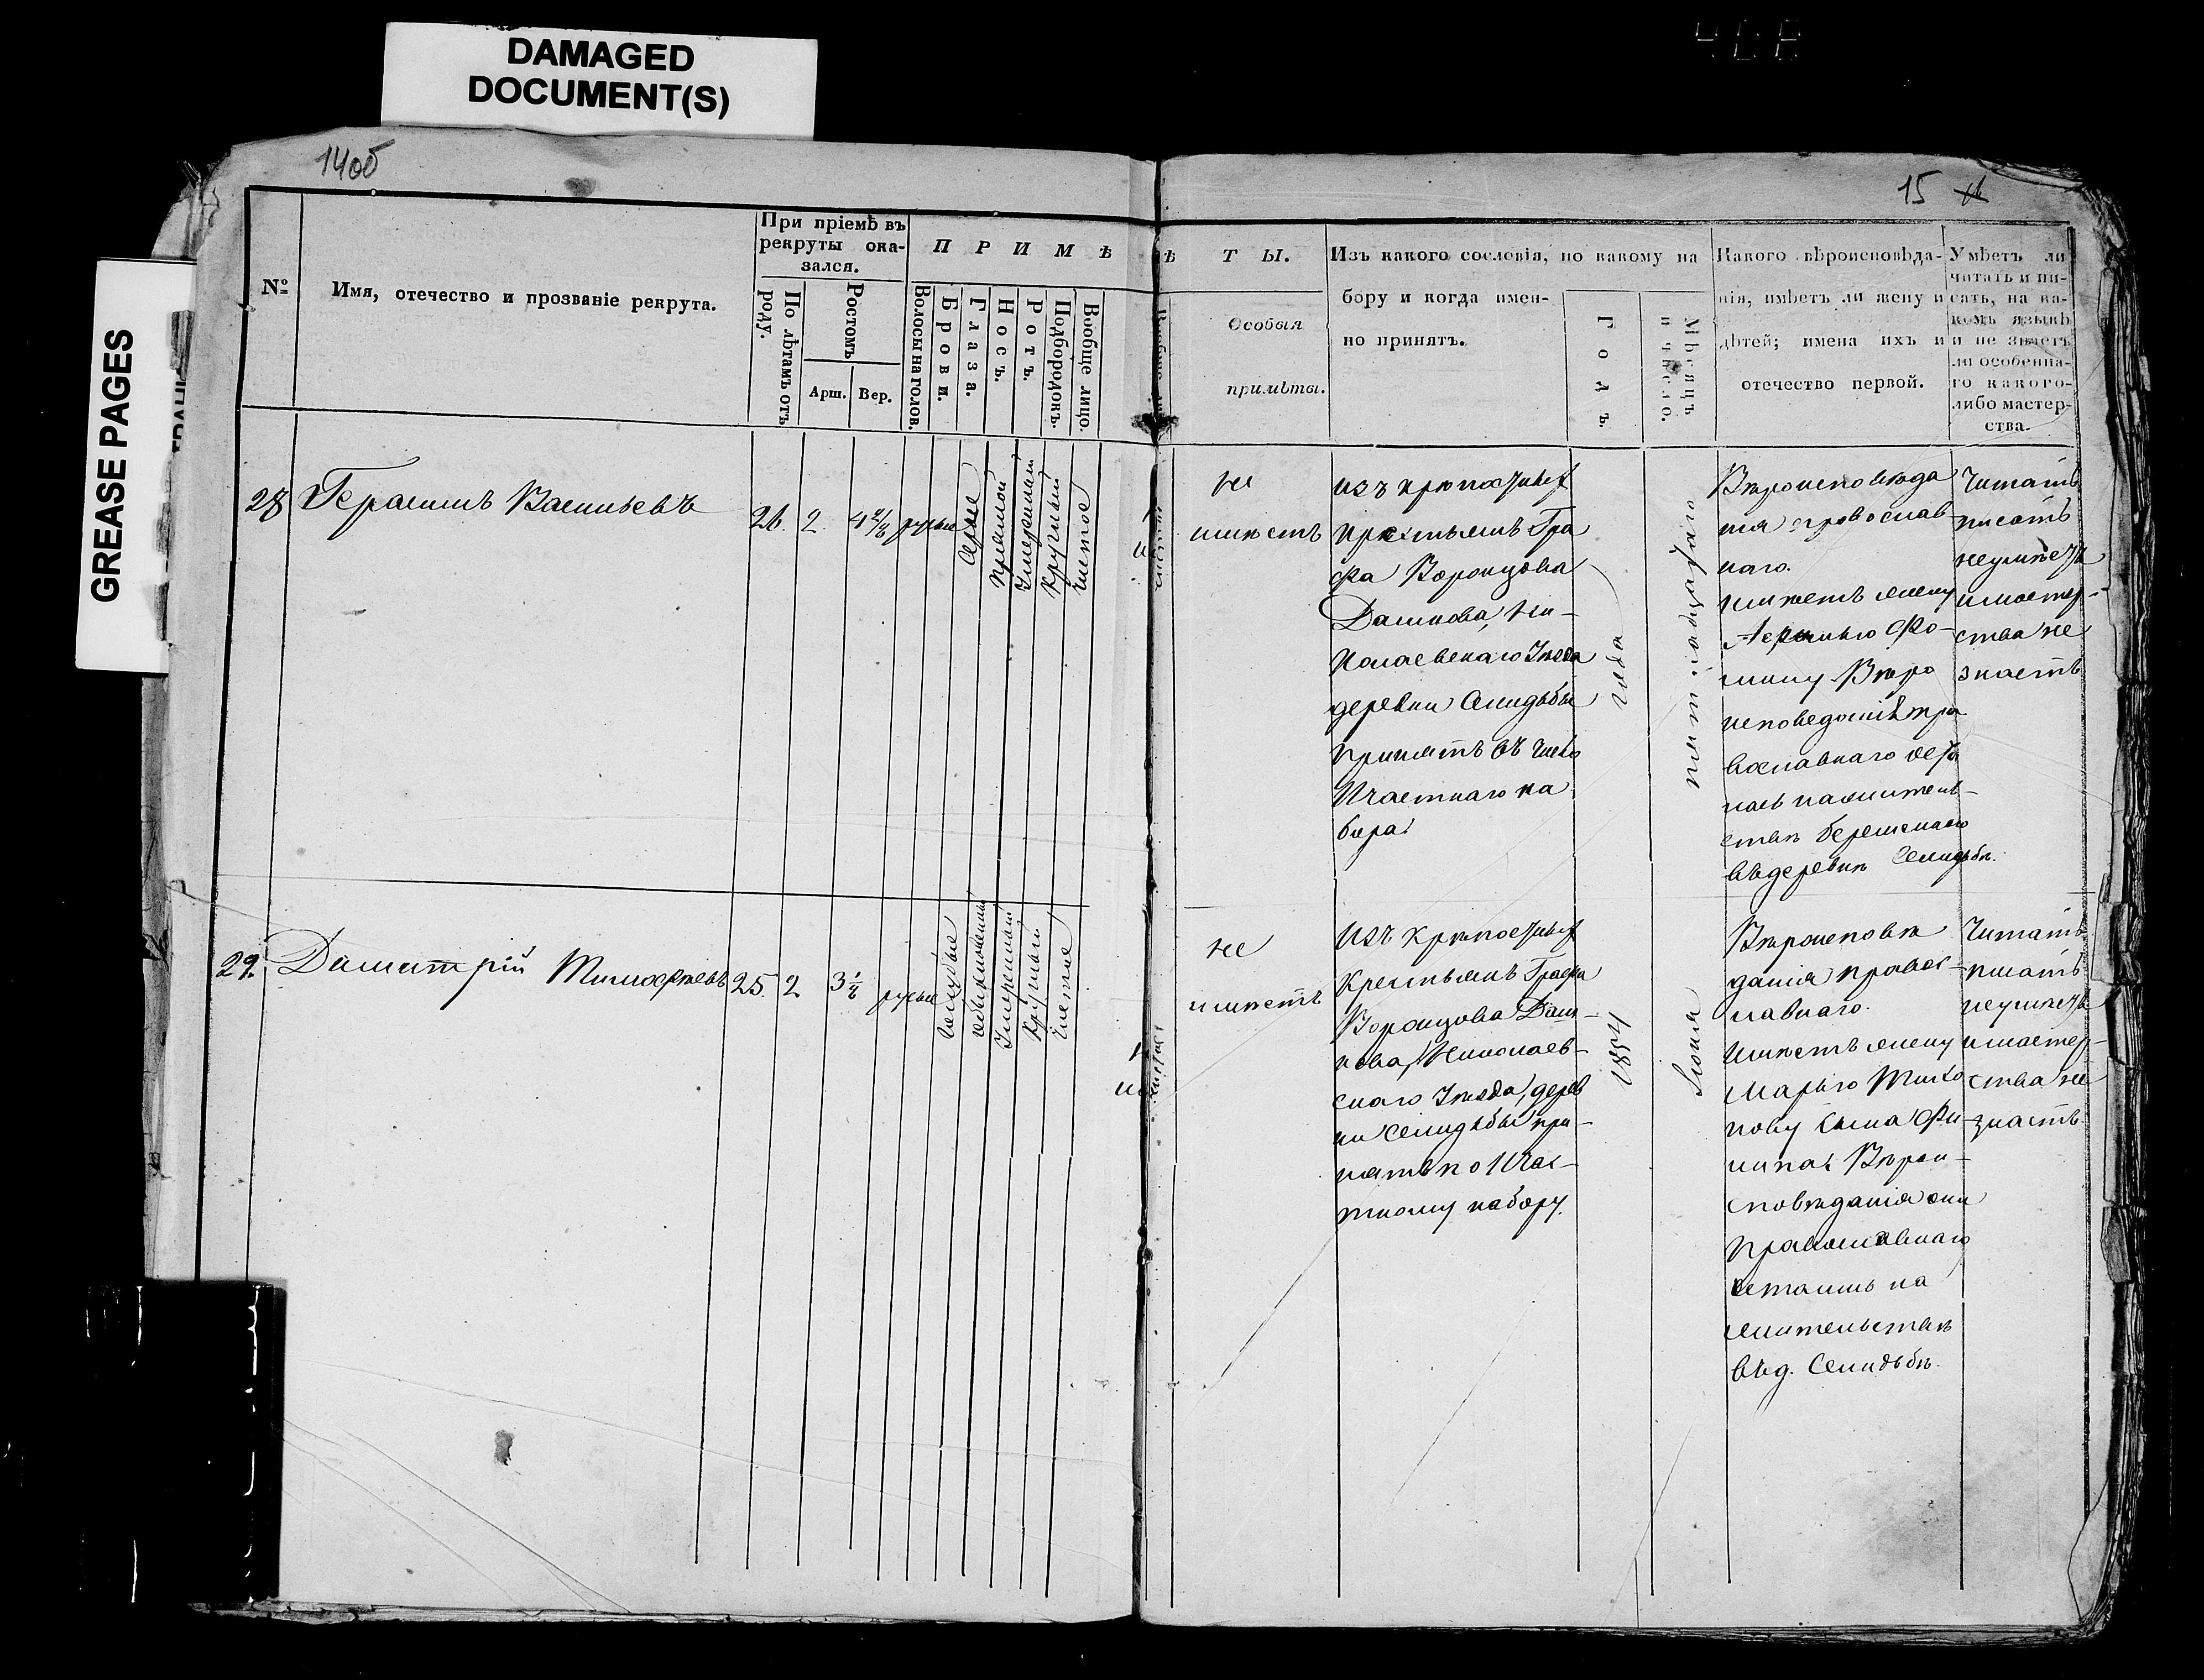 DAMAGED
DOCUMENT(S)
GREASE PAGES
14об
15
№
Имя, отечество и прозваніе рекрута.
При пріемѣ въ
рекруты ока-
зался.
По лѣтамъ отъ
роду.
Ростомъ
Арш.
Вер.
П Р И М Ѣ
Волосы на голов.
Брови.
Глаза.
Носъ.
Ротъ.
Подбородокъ.
Вообще лицо.
Ѣ Т Ы.
Особыя
примѣты.
Изъ какого сословія, по какому на
бору и когда имен-
но принятъ.
Годъ.
Мѣсяцъ
и число.
Какого вѣроисповѣда-
нія, имѣетъ ли жену и
дѣтей; имена ихъ и
отечество первой.
Умѣетъ ли
читать и пи-
сать, на ка-
комъ языкѣ
и не знаетъ
ли особенна-
го какого-
либо мастер-
ства.
28
Герасимъ Васильевъ
26.
2
4 2/4
русые
Серые
прямой
Умеренный
Круглый
Чистое
не
имѣетъ
Изъ крѣпостныхъ
крестьянъ Гра
фа Воронцова
Дашкова, Ни-
колаевскаго Уѣзда
деревни Семидьбы
принятъ въ число
Частнаго на
бора
Вѣроисповѣда
нія православ
наго.
Имѣетъ жену
Фо-
мину Вѣро
исповеданія пра
вославнаго
жительствѣ
въ деревнѣ Семидьбѣ.
Читать
писать
неумѣетъ
и мастер-
ства не
знаетъ
29.
Дмитрій
25
2
3 1/2
русые
Голубые
обыкновенный
Умеренный
Круглый
Чистое
не
имѣетъ
Изъ крѣпостныхъ
Крестьянъ Графа
Воронцова Даш-
кова, Николаев-
скаго Уѣзда, дерев
ни Семидьбы при-
нятъ по Час-
тному набору.
1854
года
Іюня
Вѣроисповѣ
данія правос-
лавнаго.
Имѣетъ жену
Марью
сына Фи-
липа. Вѣрои-
сповѣданія они
Православнаго
на
жительствѣ
въ д. Семидьбѣ.
Читать
писать
неумѣетъ
и мастер-
ства не
знаетъ